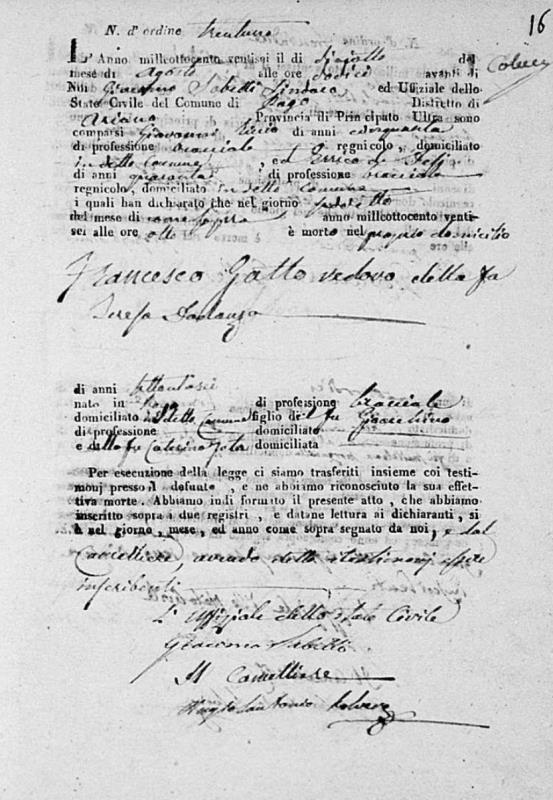 16
N. d'ordine trentuno
L'Anno millottocento ventisei il di diciotto del
mese di Agosto alle ore dodici avanti di
Noi Giacomo Sabetti Sindaco ed Ufiziale dello
Stato Civile del Comune di Zago Distretto di
Ariano Provincia di Principato Ultra sono
comparsi Giovanni di anni cinquanta
di professione bracciale regnicolo, domiciliato
in detto Comune, ed Errico de
di anni quaranta di professione bracciale
regnicolo, domiciliato in detto Comune
i quali han dichiarato che nel giorno sudetto
del mese di come sopra anno millottocento venti-
sei alle ore otto è morto nel proprio domicilio
Francesco Gatto vedovo della fu
Teresa
di anni settantasei
nato in Zago di professione bracciale
domiciliato in detto Comune figlio del fu Giacchino
di professione domiciliato
e della fu Caterina domiciliata
Per esecuzione della legge ci siamo trasferiti insieme coi testi-
monj presso il defunto, e ne abbiamo riconosciuto la sua effet-
tiva morte. Abbiamo indi formato il presente atto, che abbiamo
inscritto sopra i due registri, e datane lettura ai dichiaranti, si
è nel giorno, mese, ed anno come sopra segnato da noi, e dal
Cancelliere, avendo detto i testimonj essere
inscribenti
L'Uffiziale dello stato Civile
Giacomo Sabetti
Il Cancelliere